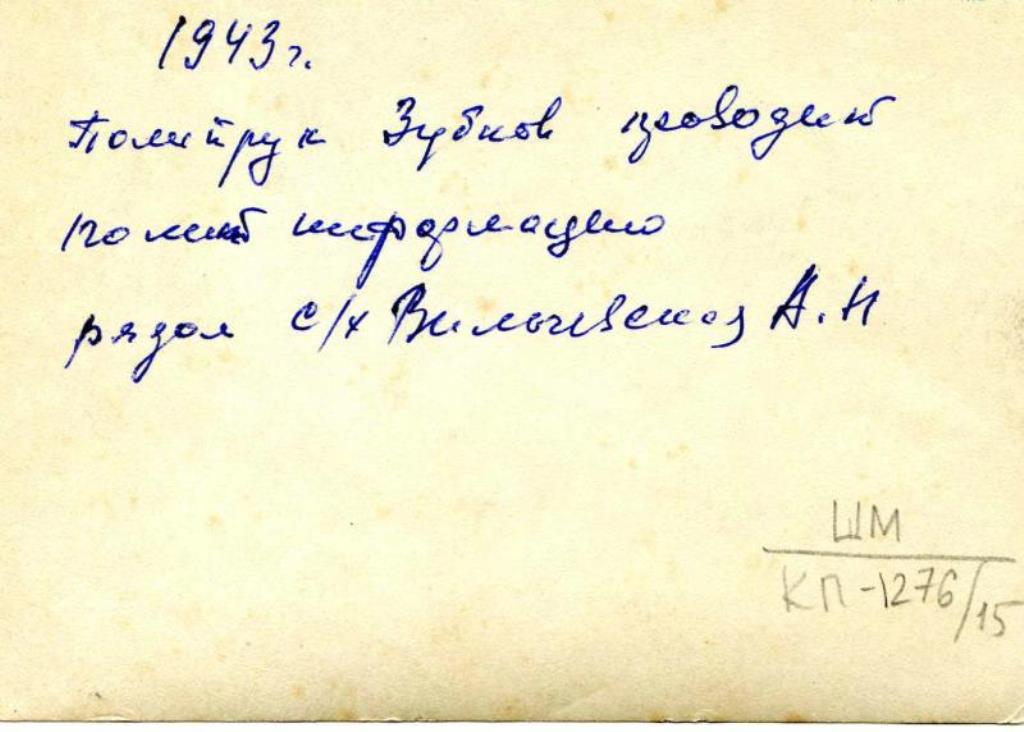 1943г.
Политрук Зубков проводит
полит информацию
рядом с/х Вильчевская А.Н
ШМ
КП-1276/15